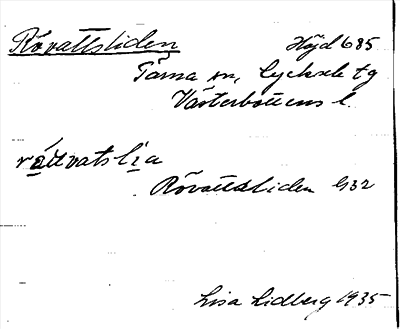 Rövattsliden Höjd 685
Tärna sn, Lycksele tg
Västerbottens l.
råttvatslia
Rövattsliden G32
Lisa Lidberg 1935